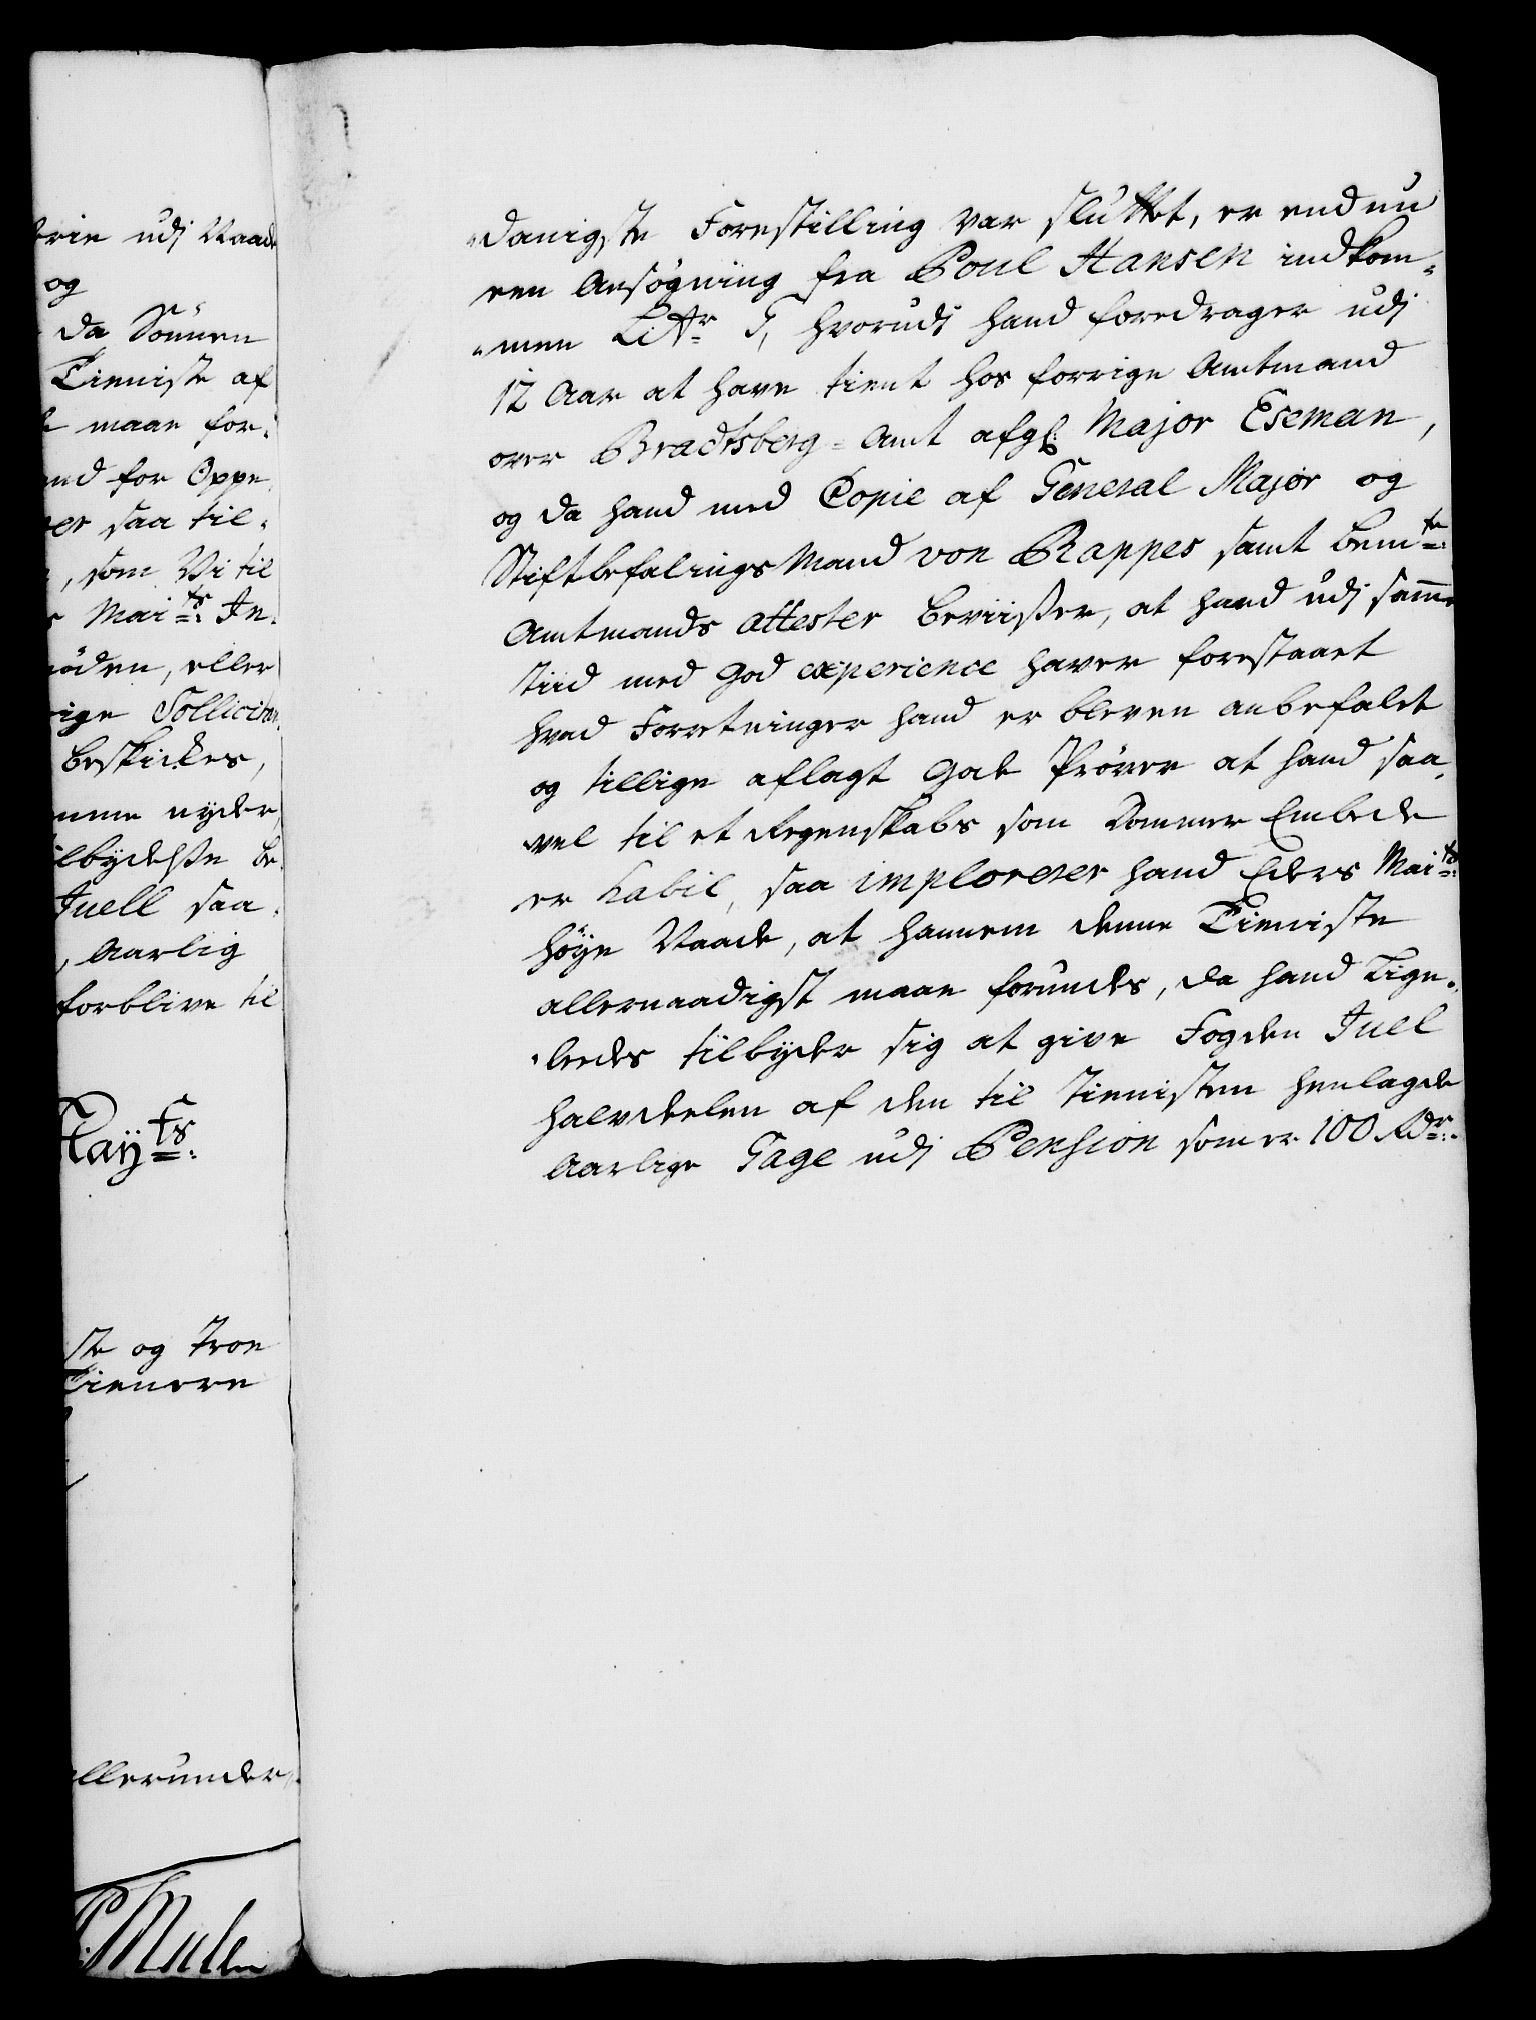 trie udj Naade
og
da Sönnen
Tieniste af
maae for-
and for Oppe
er saa til-
, som Vi til
Mai^ts: In-
öden, eller
ige Sollicitan
beskickes,
mme nyder
ilbydelse be-
Juell saa-
, Aarlig
forblive til
May^ts:
ste og Troe
Tienere
allerunder-
Mule
-danigste Forestilling var sluttet, er endnu
een Ansøgning fra Poul Hansen indkom-
-men Litr G, hvorudj hand foredrager udj
12 Aar at have tient hos forrige Amtmand
over Bradtsberg-Amt afgl: Major Eseman,
og da hand med Copie af General Major og
Stiftbefalings Mand von Rappes samt bem^te:
Amtmands attester beviisser, at hand udj samme
tiid med god experience haver forestaaet
hvad Forretninger hand er bleven anbefalet
og tillige aflagt gode Prøver at hand saa-
vel til et Regenskabs som Dommer Embede
er habil, saa imploreres hand Eders Mai^ts:
høye Naade, at hannem denne Tieniste
allernaadigst maae forundes, da hand Lige-
-ledes tilbyder sig at give Fogden Juel
halvdeelen af den til Tienisten henlagde
Aarlige Gage udj Pension som er 100 Rdr: